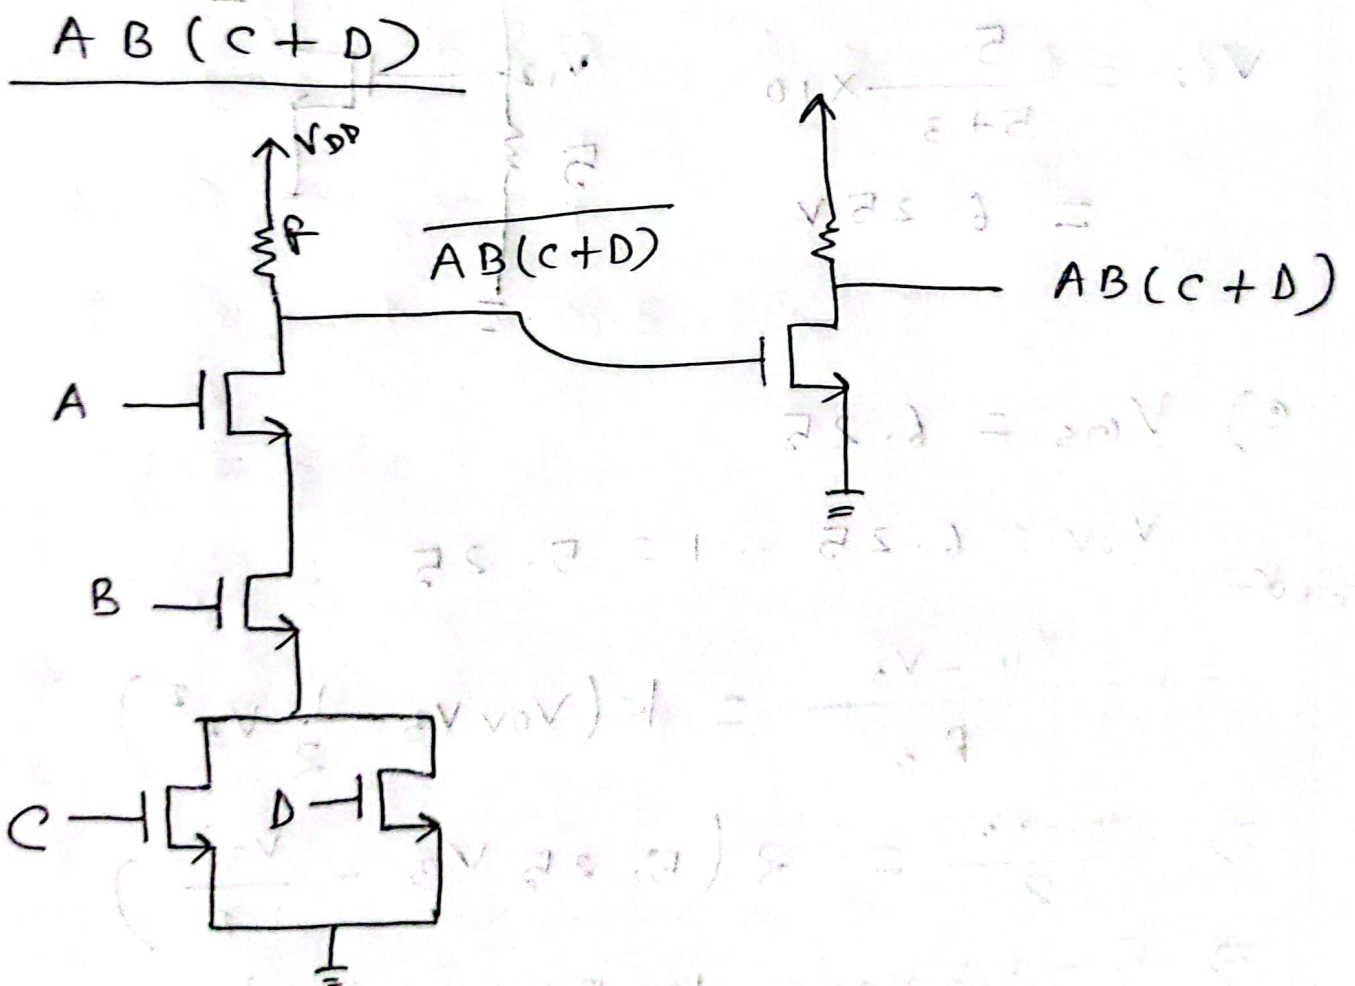 A B ( C + D )
VDD
R
AB(C+D)
AB(C+D)
A
B
C
D